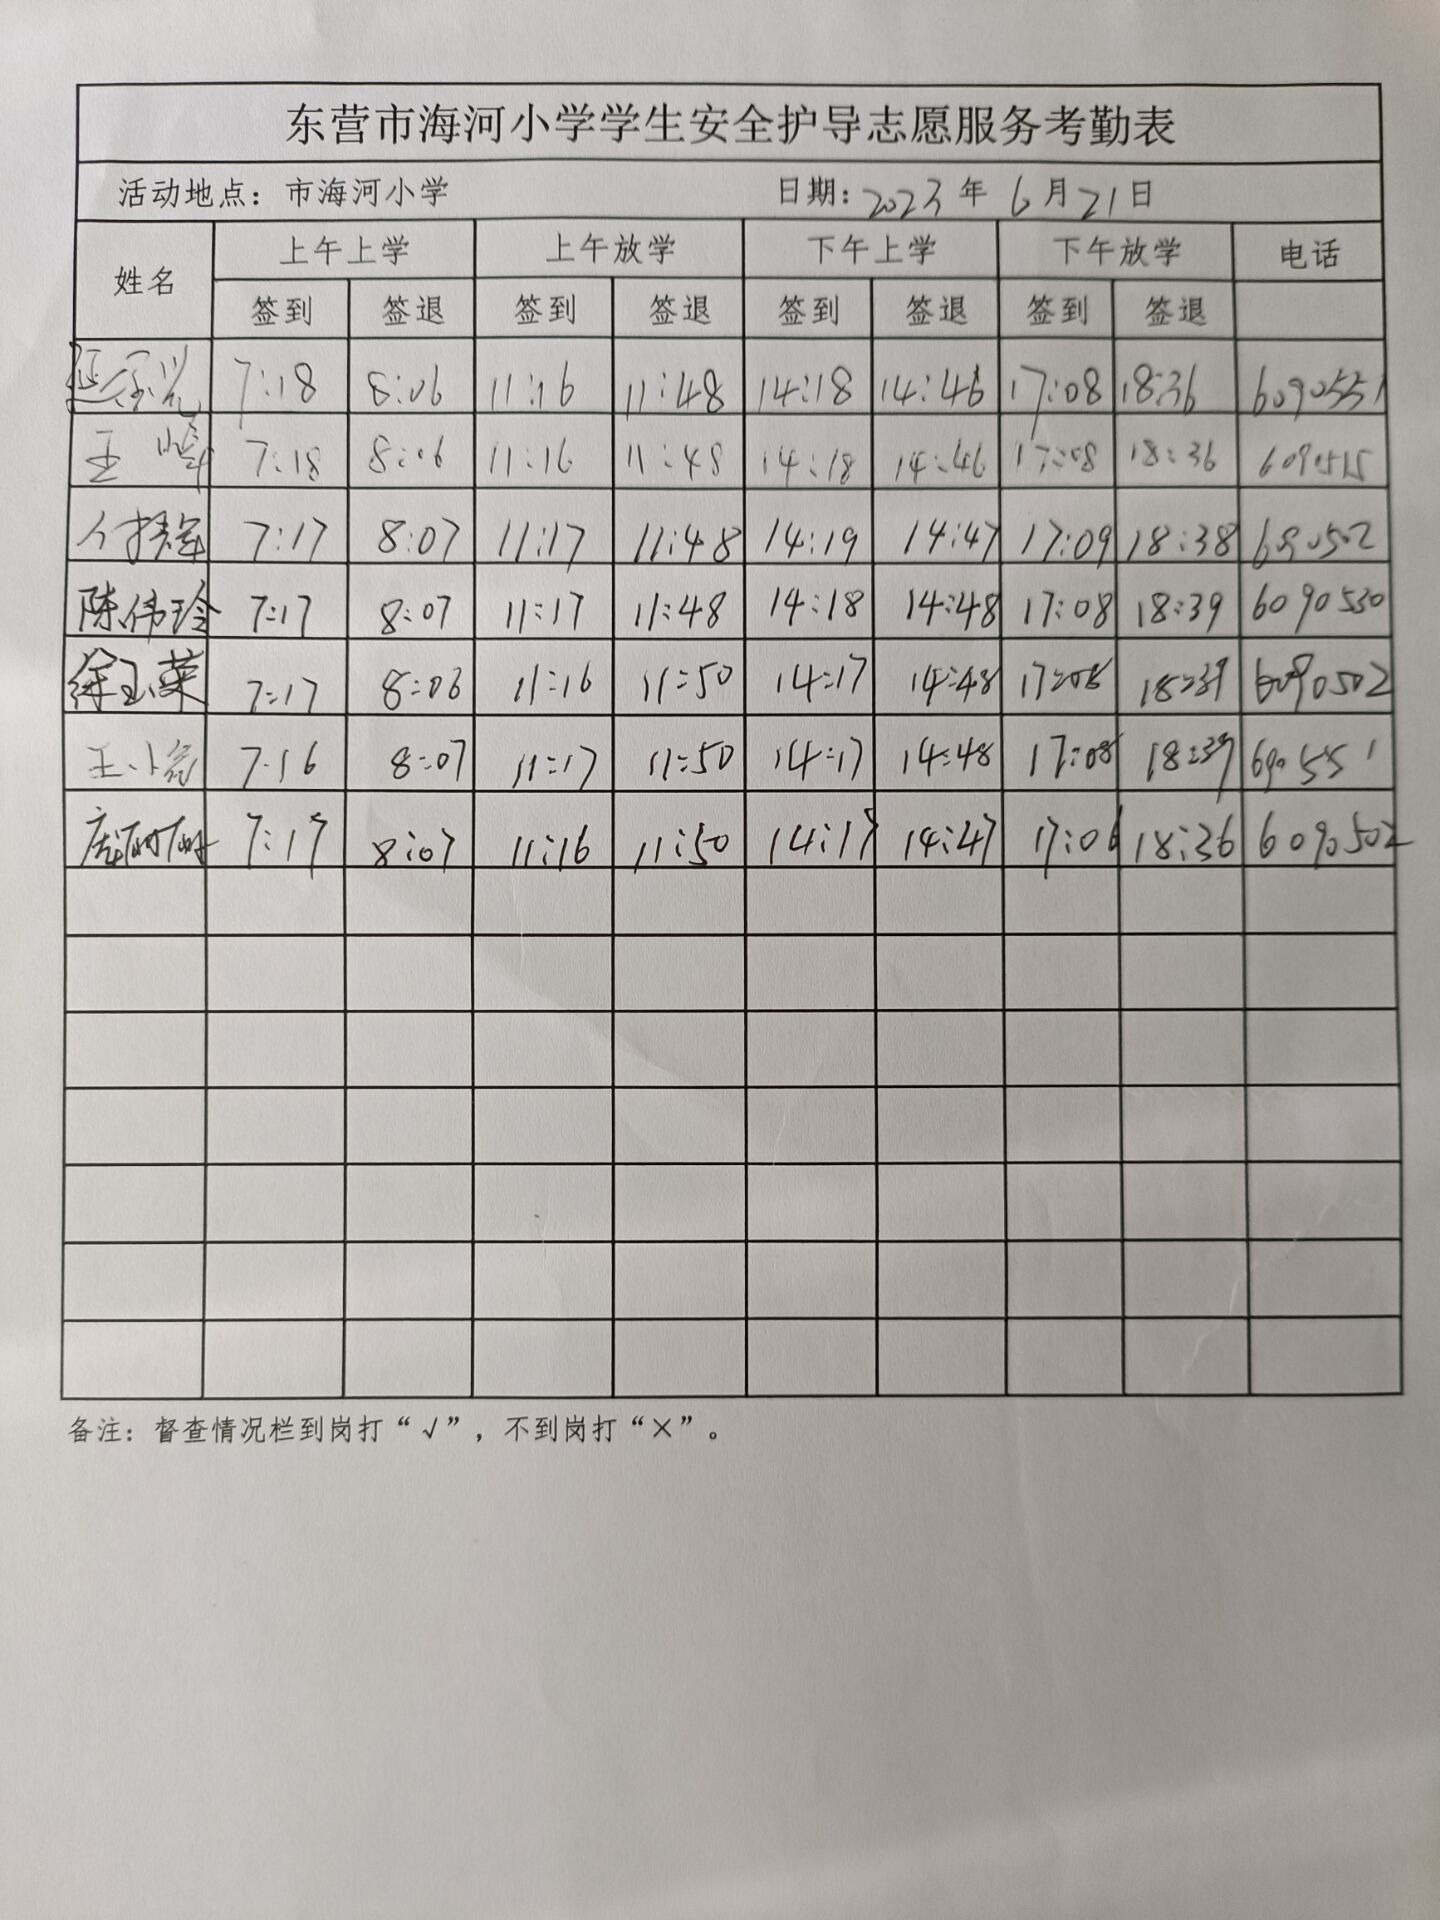 东营市海河小学学生安全护导志愿服务考勤表
活动地点：市海河小学 日期：2023年6月21日
姓名 上午上学 上午放学 下午上学 下午放学 电话
签到 签退 签到 签退 签到 签退 签到 签退
7:18 8:06 11:16 11:48 14:18 14:46 17:08 18:36 6090551
王峰 7:18 8:06 11:16 11:48 14:18 14:46 17:08 18:36
7:17 8:07 11:17 11:48 14:19 14:47 17:09 18:38 6090502
陈伟玲 7:17 8:07 11:17 11:48 14:18 14:48 17:08 18:39 6090530
徐玉荣 7:17 8:06 11:16 11:50 14:17 14:48 17:08 18:39 6090502
7:16 8:07 11:17 11:50 14:17 14:48 17:08 18:39
7:17 8:07 11:16 11:50 14:17 14:47 17:06 18:36 6090502
备注：督查情况栏到岗打“√”，不到岗打“×”。